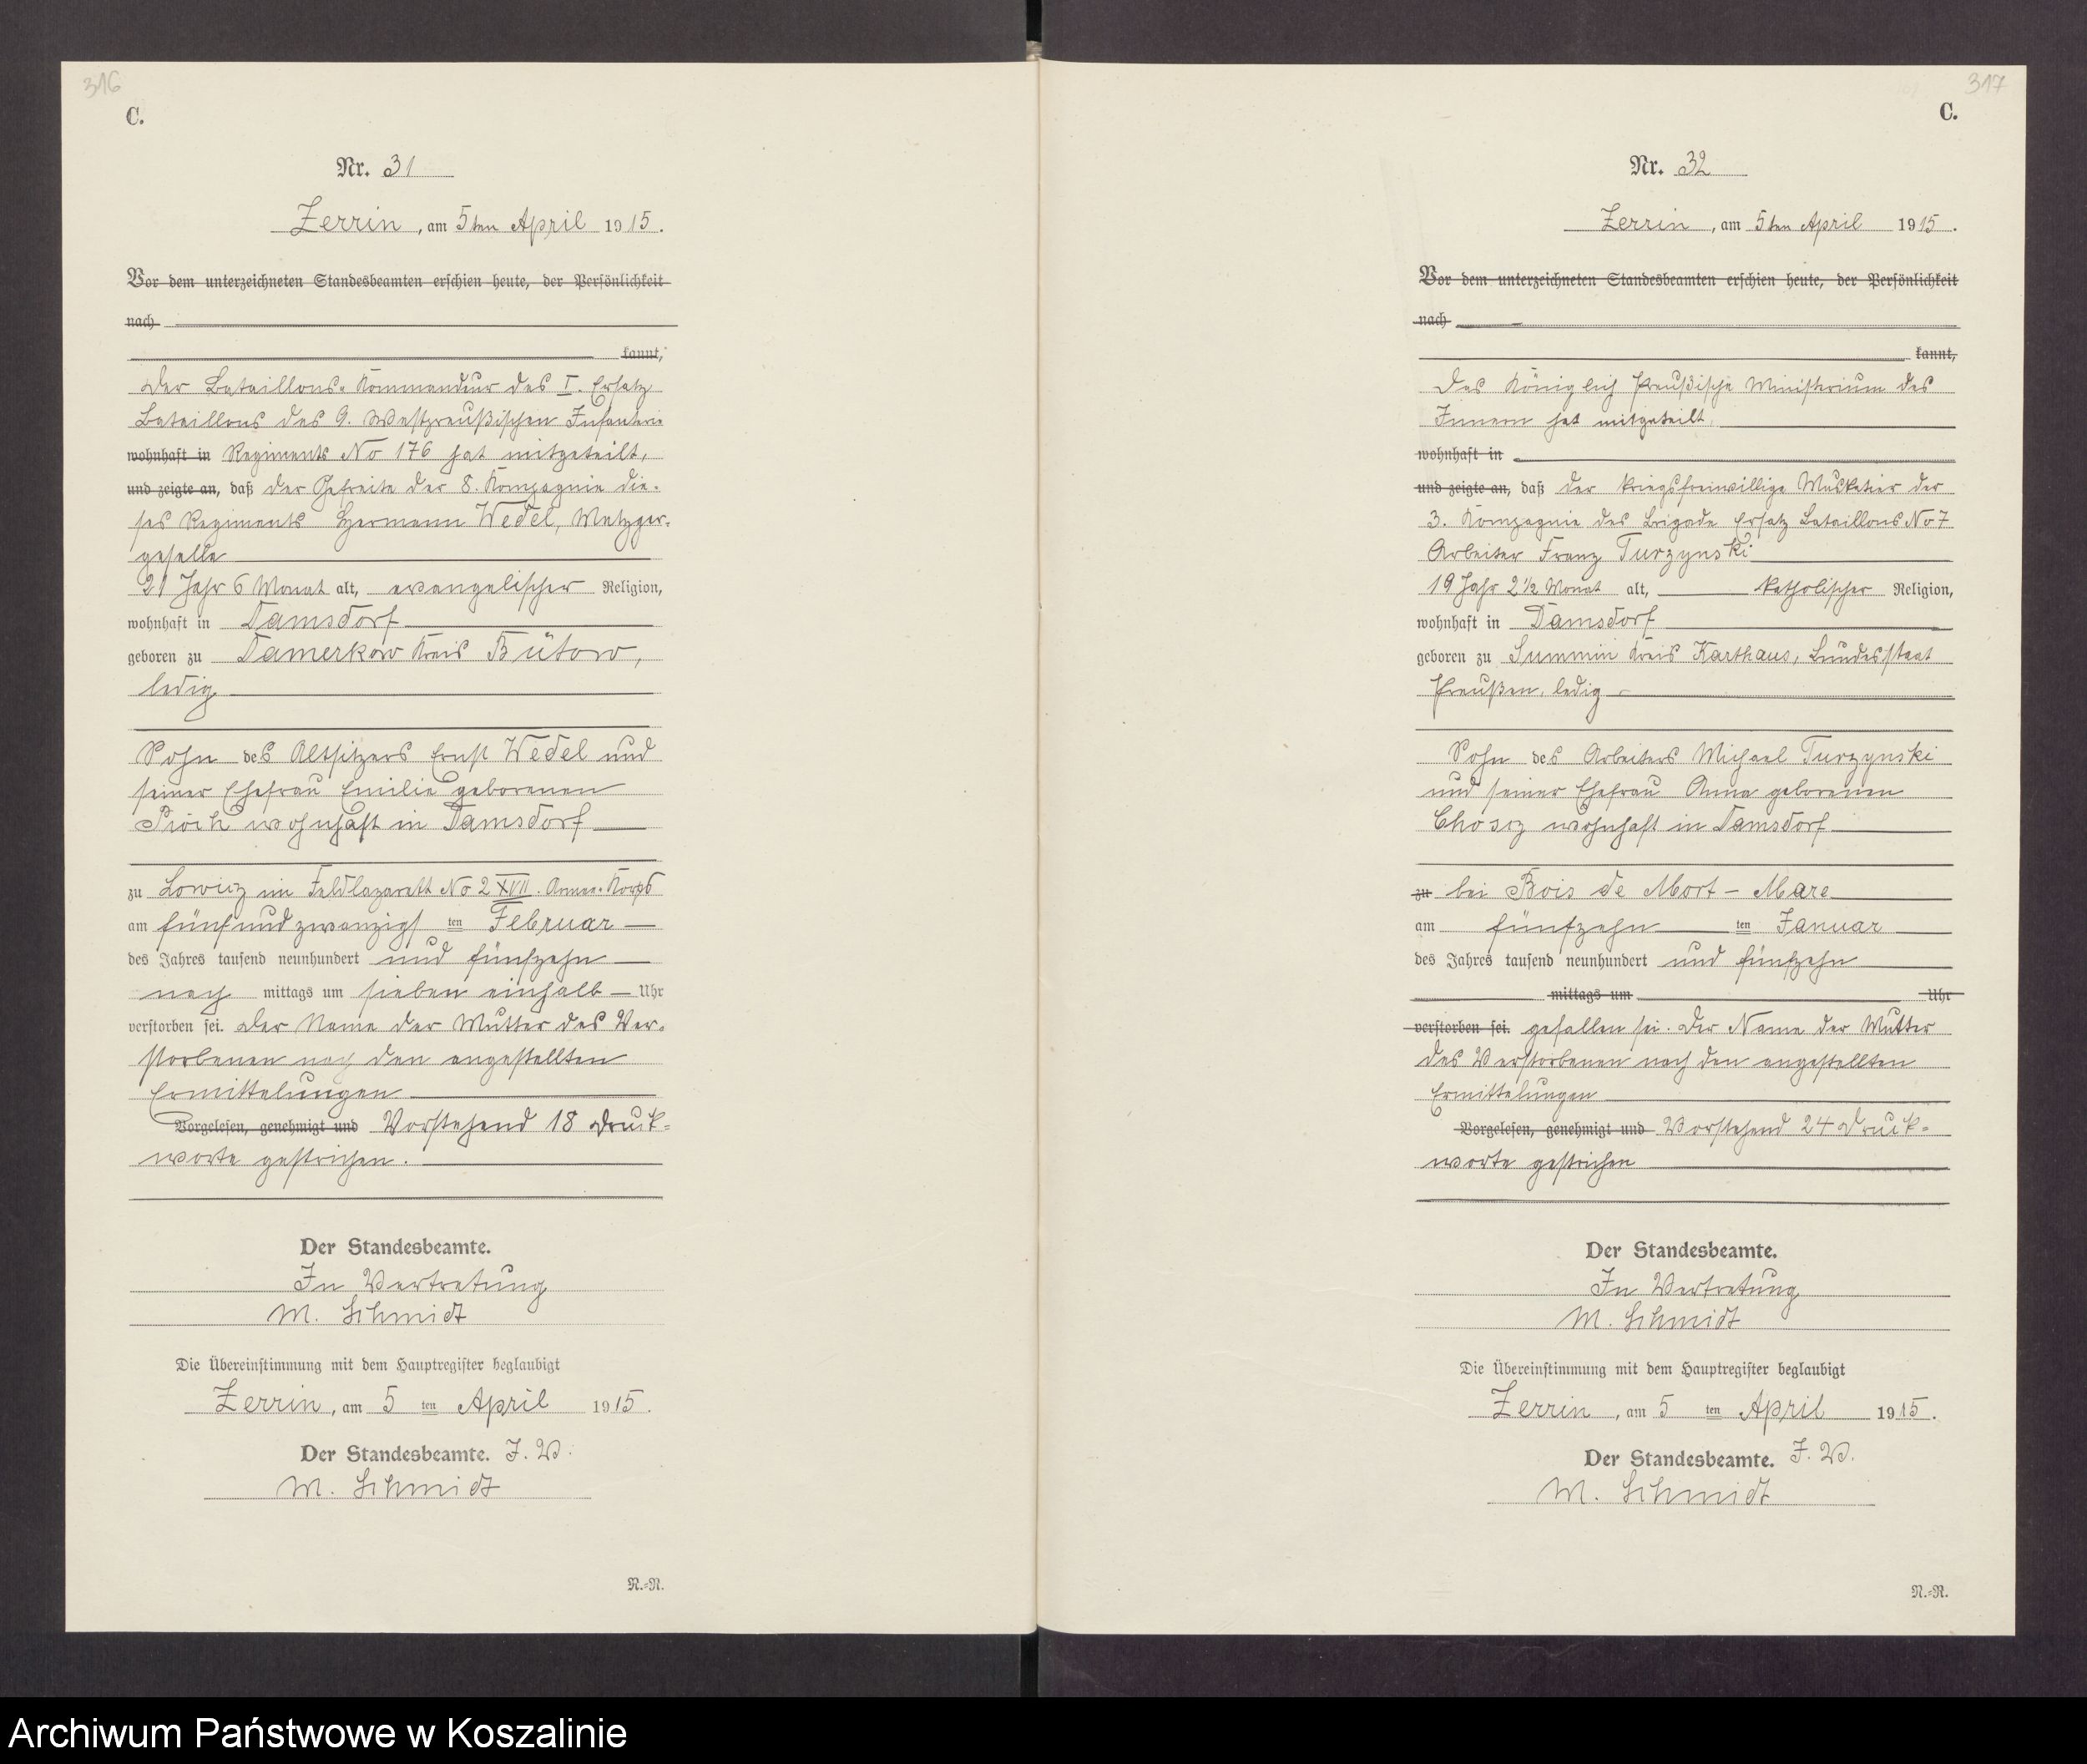 316
C.
Nr. 31
Zerrin, am 5ten April 1915.
Vor dem unterzeichneten Standesbeamten erschien heute, der Persönlichkeit
nach
kannt,
Der Bataillons-Kommandeur des I. Ersatz
Bataillons des 9. Westpreußischen Infanterie
wohnhaft in Regiments No 176 hat mitgeteilt,
und zeigte an, daß der Gefreite der 8. Kompagnie die-
ses Regiments Hermann Wedel, Metzger-
geselle
21 Jahr 6 Monat alt, evangelischer Religion,
wohnhaft in Damsdorf
geboren zu Damerkow Kreis Bütow,
ledig
Sohn des Altsitzers Ernst Wedel und
seiner Ehefrau Emilie geborenen
wohnhaft in Damsdorf
zu Lowicz im Feldlazarett No 2 XVII. Armee-Korps
am fünfundzwanzigsten Februar
des Jahres tausend neunhundert und fünfzehn
nach mittags um sieben einhalb Uhr
verstorben sei. Der Name der Mutter des Ver-
storbenen nach den angestellten
Ermittelungen
Vorgelesen, genehmigt und Vorstehend 18 Druck-
worte gestrichen.
Der Standesbeamte.
In Vertretung
M. Schmidt
Die Übereinstimmung mit dem Hauptregister beglaubigt
Zerrin, am 5 ten April 1915.
Der Standesbeamte. I. V.
M. Schmidt
R.=N.
317
C.
Nr. 32
Zerrin, am 5ten April 1915.
Vor dem unterzeichneten Standesbeamten erschien heute, der Persönlichkeit
nach
kannt,
Das Königlich Preußische Ministerium des
Innern hat mitgeteilt
wohnhaft in
und zeigte an, daß der kriegsfreiwillige Musketier der
3. Kompagnie des Brigade Ersatz Bataillons No 7
Arbeiter Franz Turzynski
19 Jahr 2 1/2 Monat alt, katholischer Religion,
wohnhaft in Damsdorf
geboren zu Summin Kreis Karthaus, Bundesstaat
Preußen, ledig
Sohn des Arbeiters Michael Turzynski
und seiner Ehefrau Anna geborenen
wohnhaft in Damsdorf
zu bei Bois de Mort-Mare
am fünfzehn ten Januar
des Jahres tausend neunhundert und fünfzehn
mittags um Uhr
verstorben sei. gefallen sei. Der Name der Mutter
des Verstorbenen nach den angestellten
Ermittelungen
Vorgelesen, genehmigt und Vorstehend 24 Druck-
worte gestrichen
Der Standesbeamte.
In Vertretung
M. Schmidt
Die Übereinstimmung mit dem Hauptregister beglaubigt
Zerrin, am 5 ten April 1915.
Der Standesbeamte. I. V.
M. Schmidt
R.=N.
Archiwum Państwowe w Koszalinie